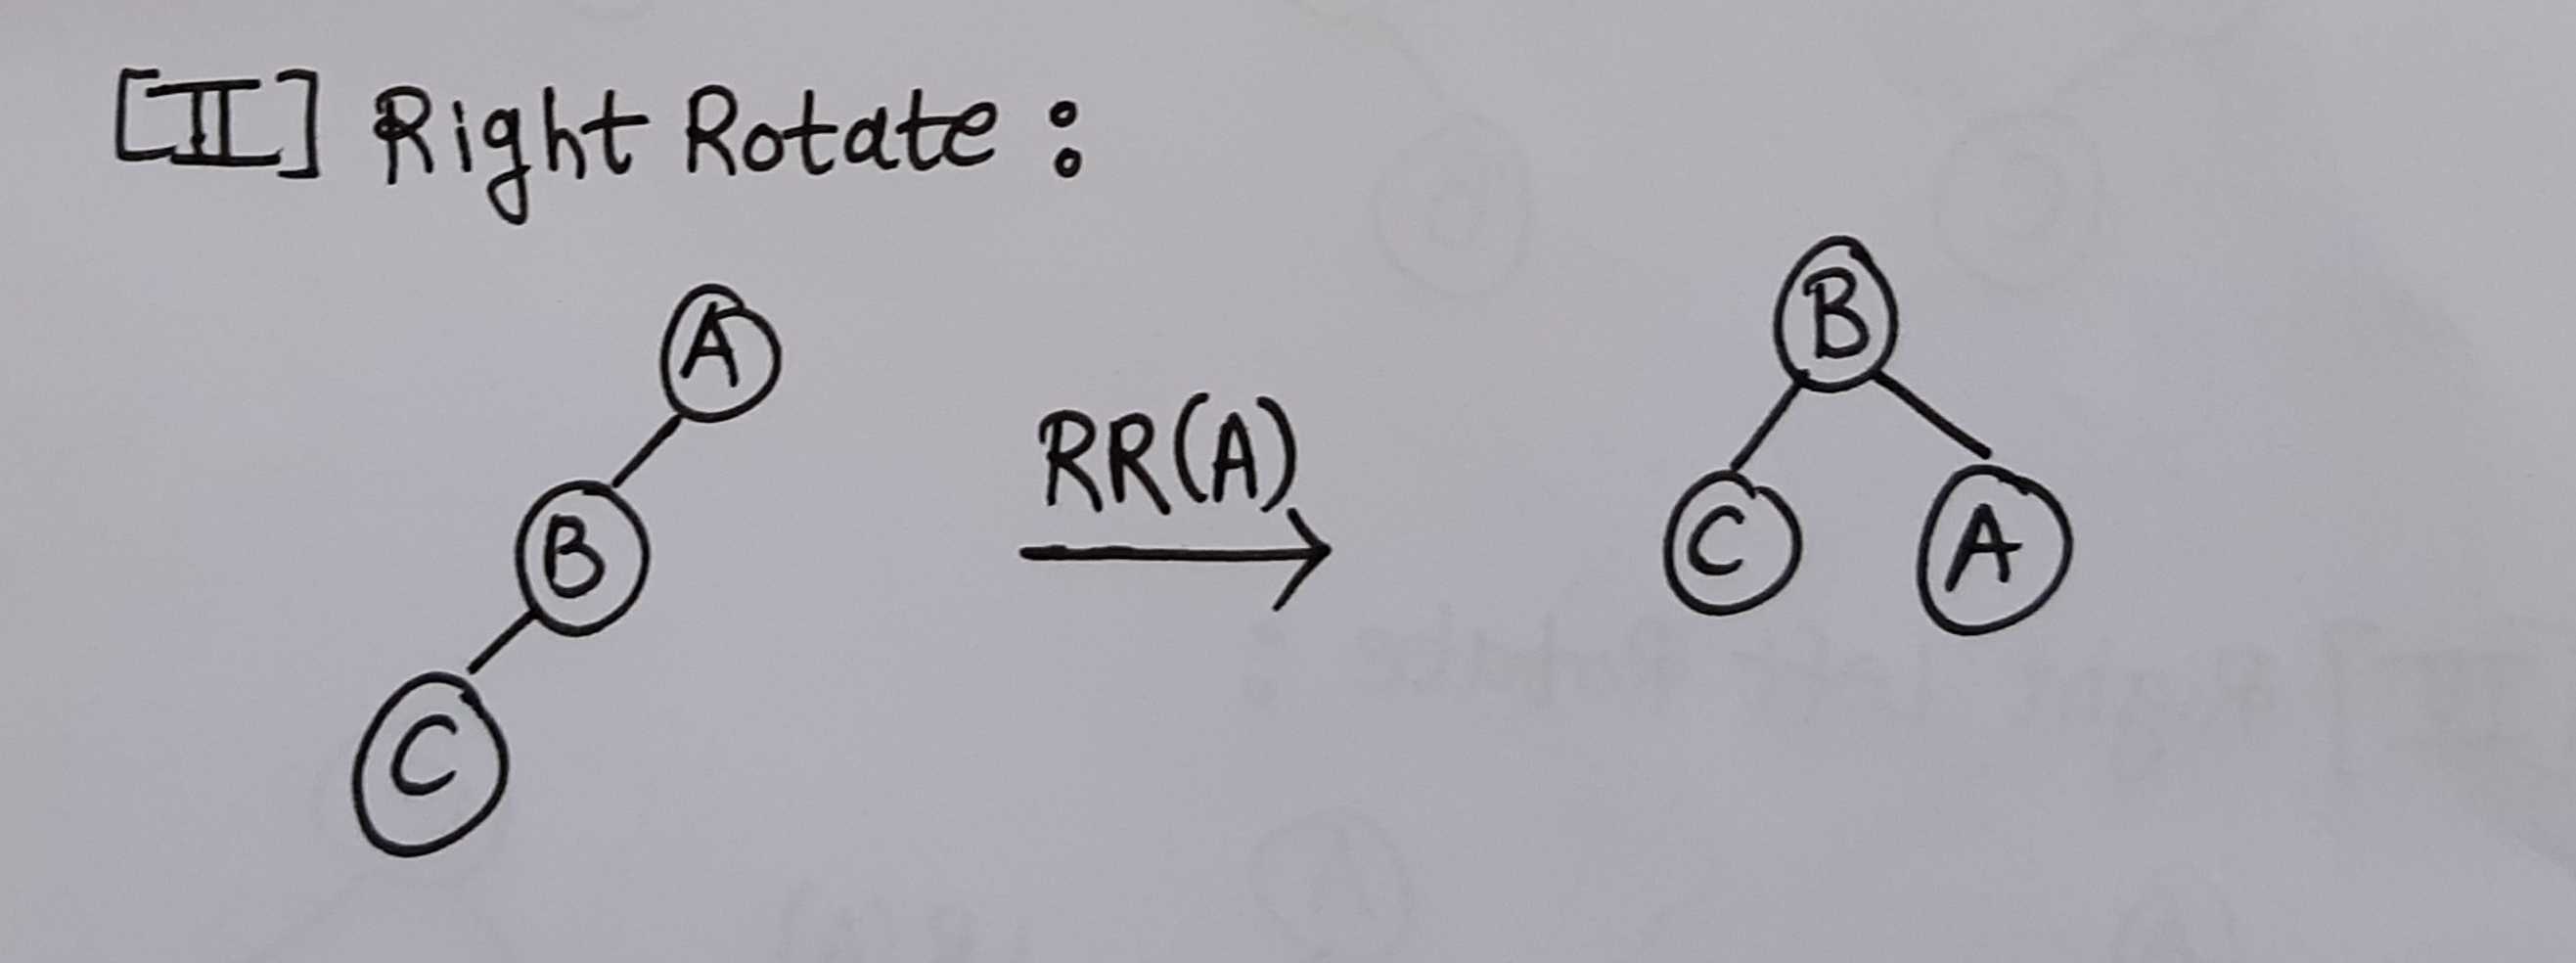 [II] Right Rotate :
A
B
C
RR(A)
B
C A